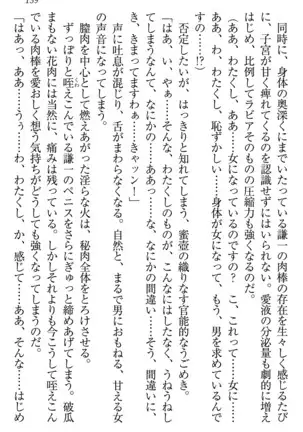 159
同時に、身体の奥深くにまでいたっている謙一の肉棒の存在を生々しく感じるたび
に、子宮が甘く痺れてくるのを認識せずにはいられない。愛液の分泌量も劇的に増え
はじめ、比例してラビアそのものの圧縮力も強くなるのだ。
「ああ、わ、わたくし、恥ずかしい……身体が女になって、もう、男を求めているん
ですの……!? ああ、あ……女になっているのですの? こ、これって……女に……
ああ、わたくしっ」
否定したいが、はっきりと知れてしまう、蜜壺の織りなす官能的なうごめき。
「はぁ、い、やぁ……そんな、わたくしのものが、こんなにはしたなく、うねうねし
て……ああっ、な、なにかの……ああっ……なにかの間違い……そう、間違いに、
き、きまってますわぁ……きゃッン!」
声に吐息が混じり、舌がまわらなくなる。自然と、まるで男におもねる、甘える女
の声音になってしまう。
膣肉を中心として燃えあがった淫らな火は、秘肉全体をとろけさせる。
ずっぽりと咥えこんでいる謙一のペニスをさらにぎゅっと締めあげてしまう。破瓜
まもない花肉には当然に、痛みは残っている。しかしそれよりも今こうして咥えこん
でいる肉棒を愛おしく想う気持ちがどうしても強くなってしまうのだ。
「はあっ、あ、ああ……うぅ……わ、わたくし、か、感じて……ああ、そんな……はじめ